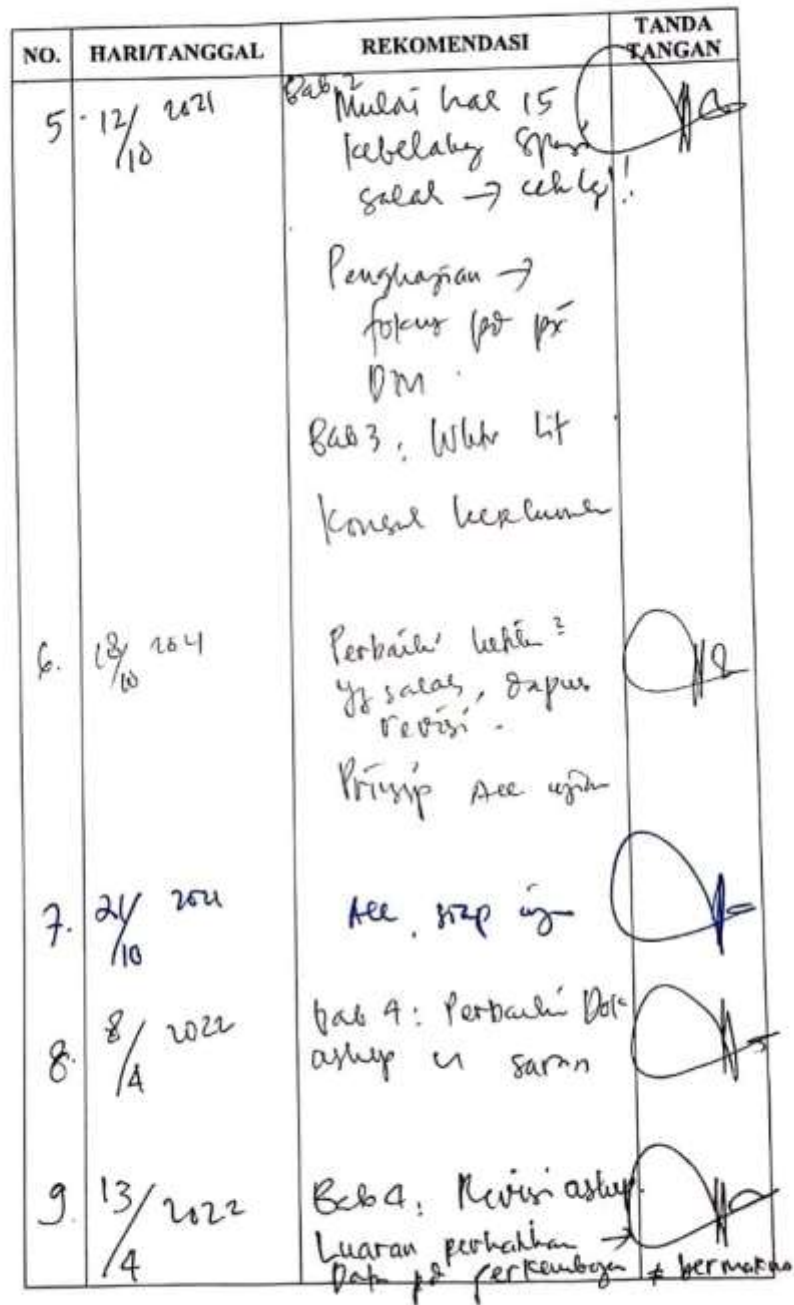 NO. HARI/TANGGAL REKOMENDASI TANDA TANGAN
5. 12/10 2021 Bab 2 Mulai hal 15
kebelakang spasi
salah → cek lagi!!
Pengkajian →
fokus pd px
DM.
Bab 3: Lit
Konsul
6. 18/10 2021 Perbaiki
yg salah, dapus
revisi.
Prinsip Acc ujian
7. 21/10 2021 Acc, siap ujian
8. 8/4 2022 Bab 4: Perbaiki Dok
askep saran
9. 13/4 2022 Bab 4: Revisi askep.
Luaran perhatikan →
Data pd perkembangan ≠ bermakna